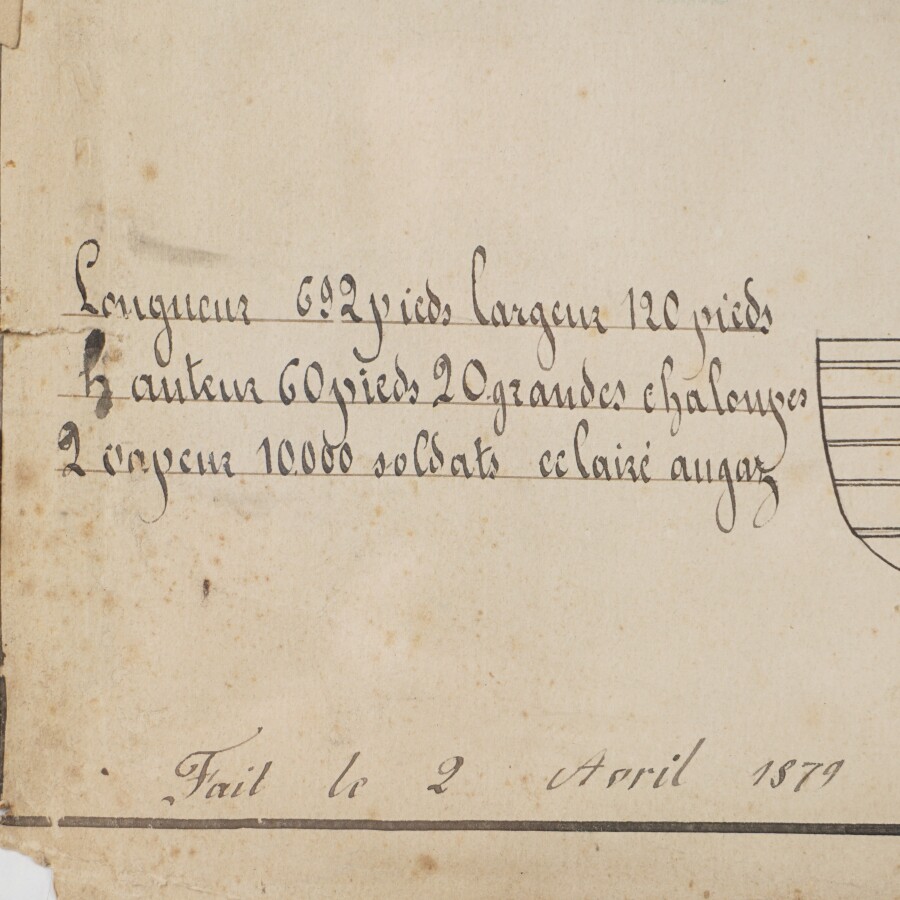 Longueur 692 pieds largeur 120 pieds
hauteur 60 pieds 20 grandes chaloupes
2 vapeur 10.000 soldats eclairé augaz
Fait le 2 Avril 1879